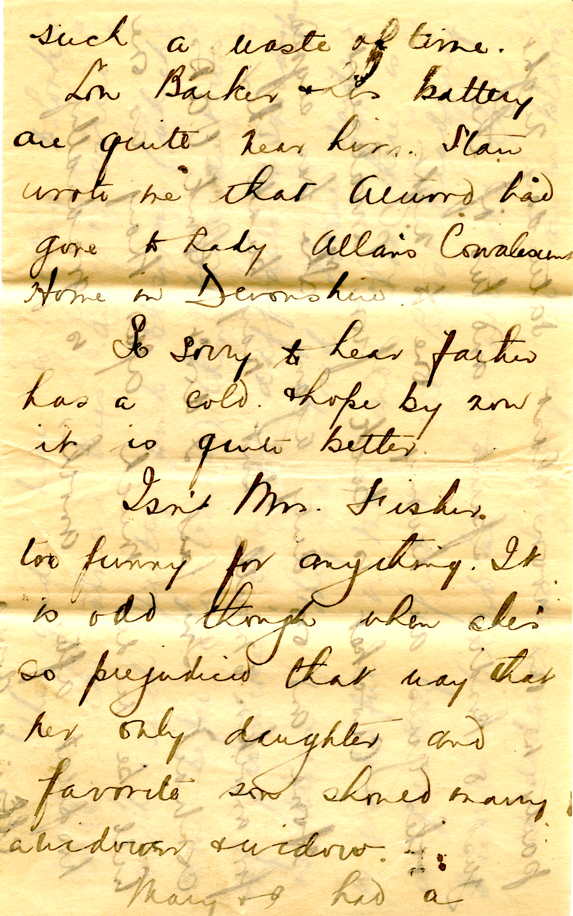 such a waste of time.
Lon Barker & his battery
are quite near him. Stan
wrote me that Alword had
gone to Lady Allan's Convalescent
Home in Devonshire.
So sorry to hear father
has a cold. & hope by now
it is quite better.
Isn't Mrs. Fisher
too funny for anything. It
is odd though when she's
so prejudiced that way that
her only daughter and
favorite son should marry
a widower & widow.
Mary & I had a